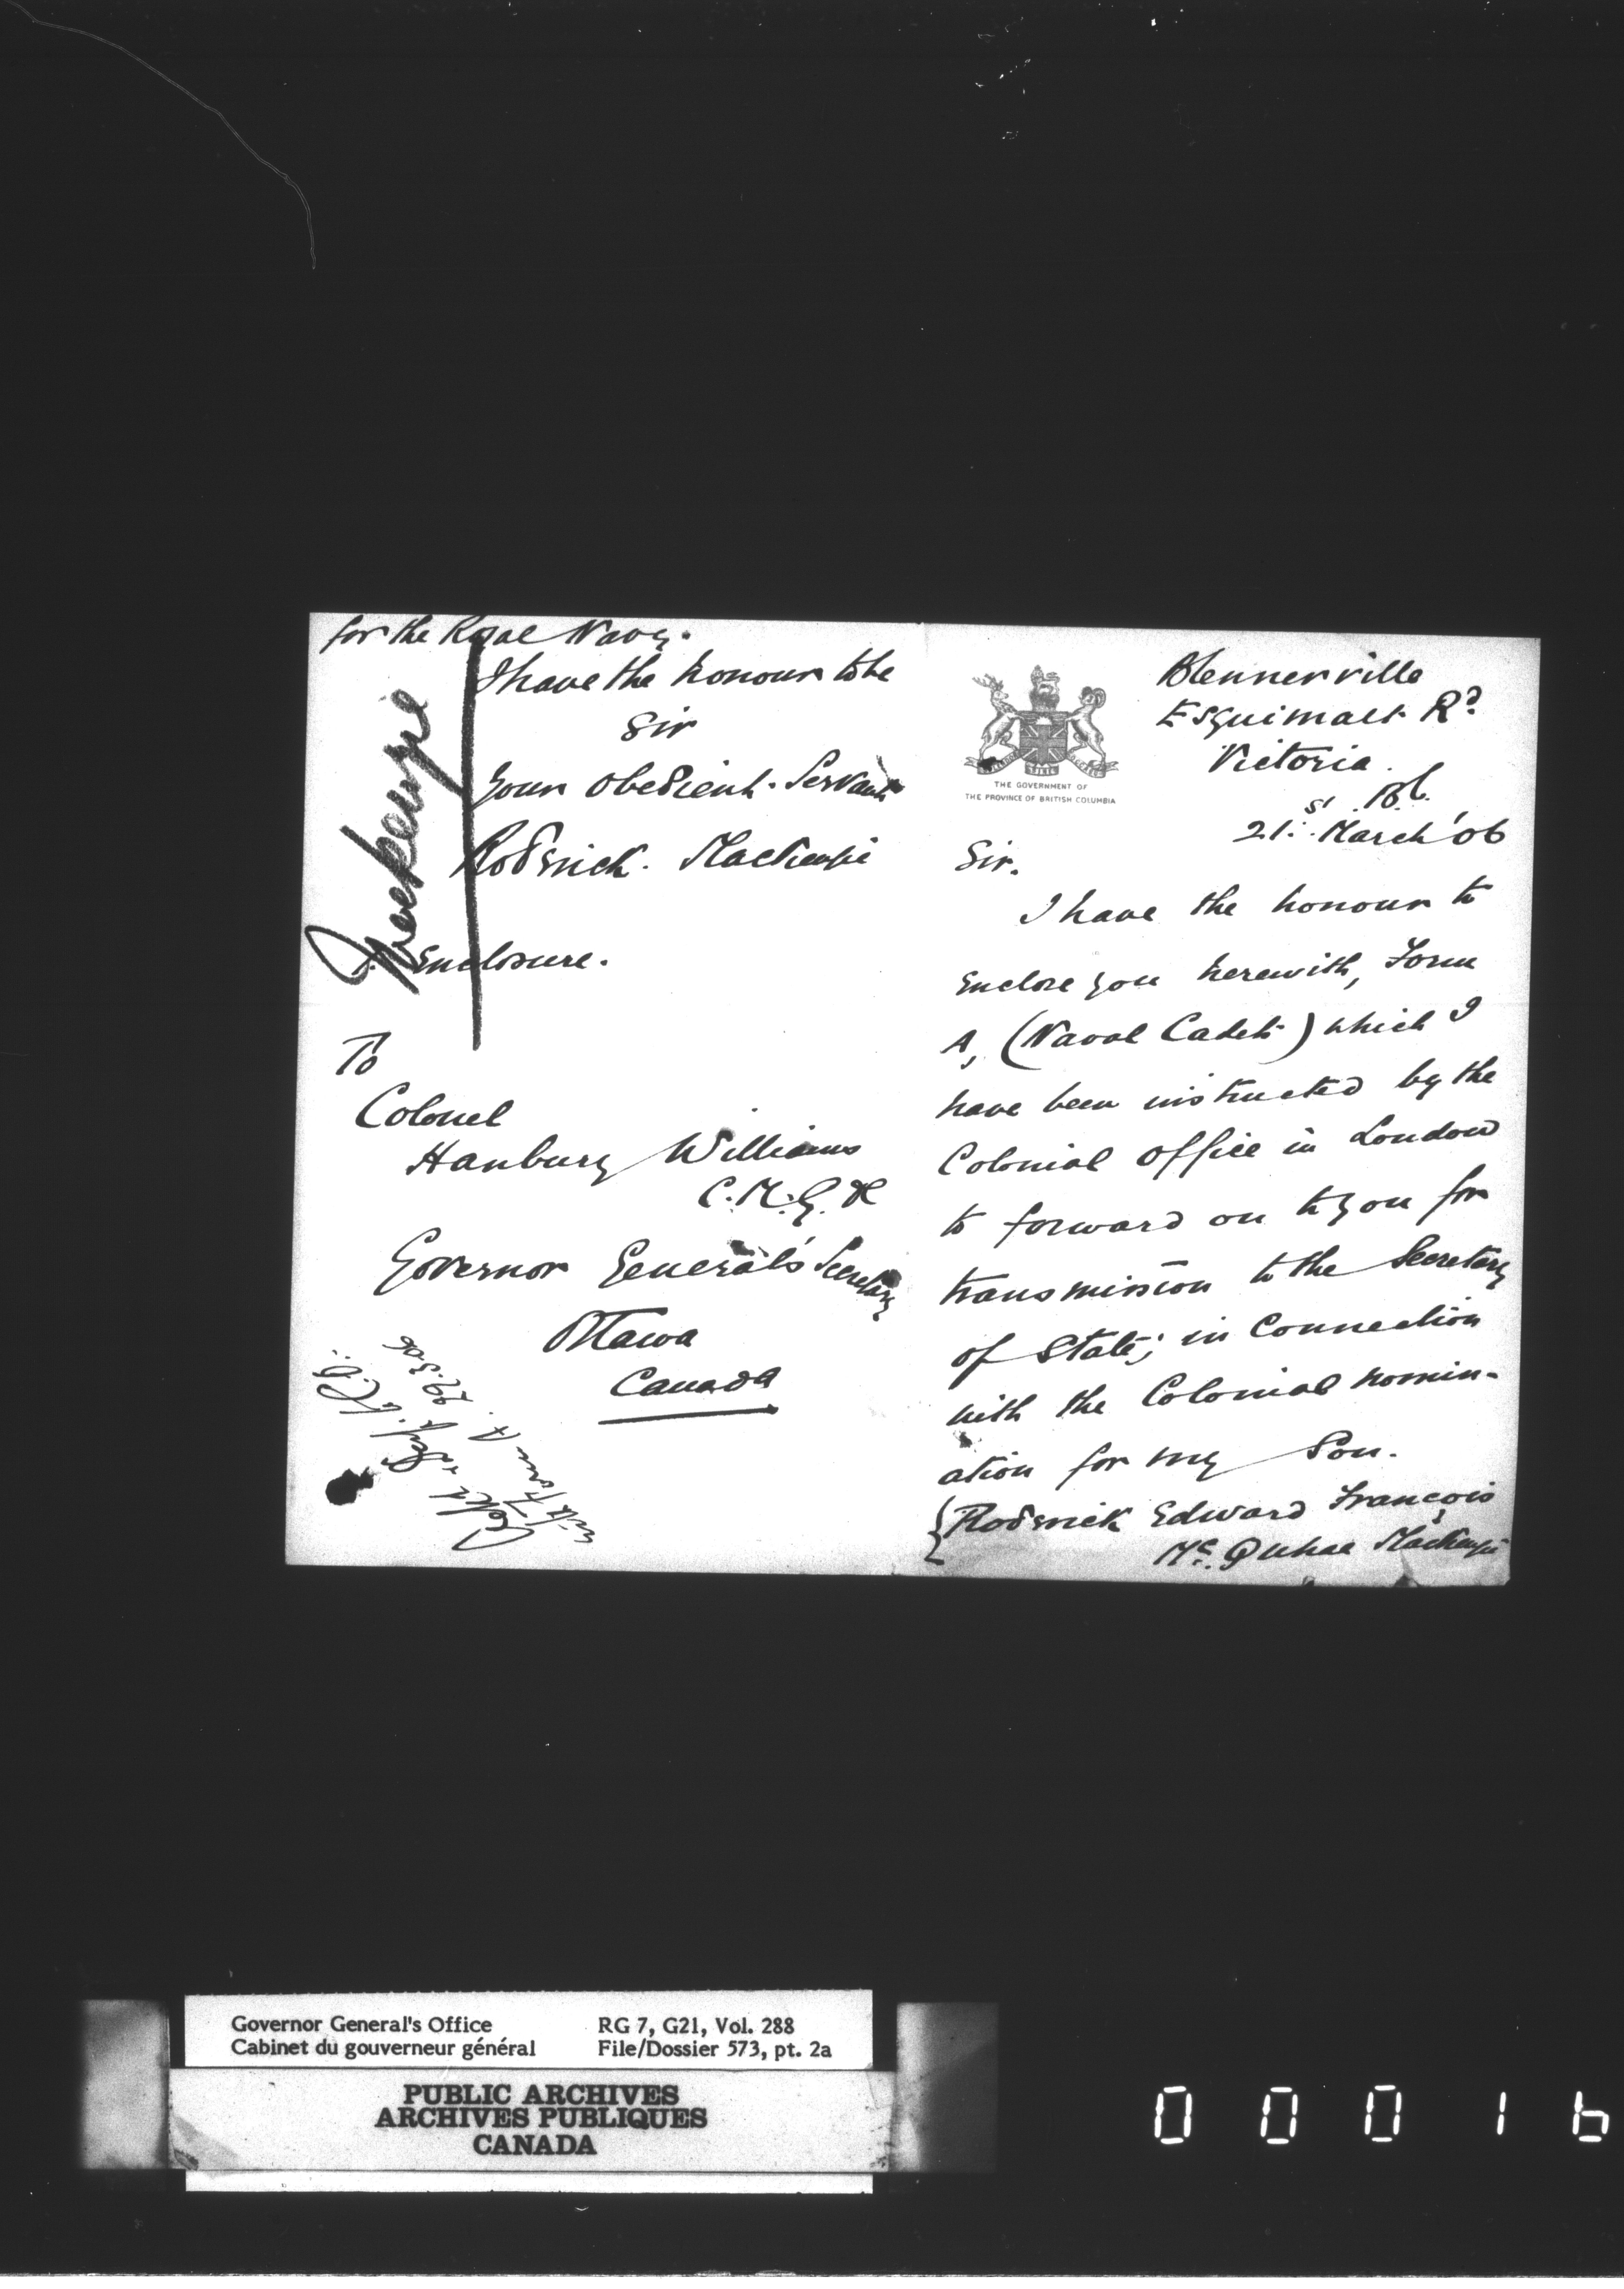 THE GOVERNMENT OF
THE PROVINCE OF BRITISH COLUMBIA
Blennerville
Esquimalt Rd.
Victoria.
B.C.
21st. March '06
Sir.
I have the honour to
enclose you herewith, Form
A, (Naval Cadets) which I
have been instructed by the
Colonial Office in London
to forward on to you for
transmission to the Secretary
of State; in Connection
with the Colonial nomin-
ation for my Son.
{Roderick Edward François
Mc. Mackenzie
for the Royal Navy.
I have the honour to be
Sir
Your obedient Servant
Roderick. Mackenzie
Mackenzie
1. Enclosure.
To
Colonel
Hanbury Williams
C.M.G. &c
Governor General's Secretary
Ottawa
Canada
with Form A. 29.3.06
Governor General's Office
Cabinet du gouverneur général
RG 7, G21, Vol. 288
File/Dossier 573, pt. 2a
PUBLIC ARCHIVES
ARCHIVES PUBLIQUES
CANADA
00016